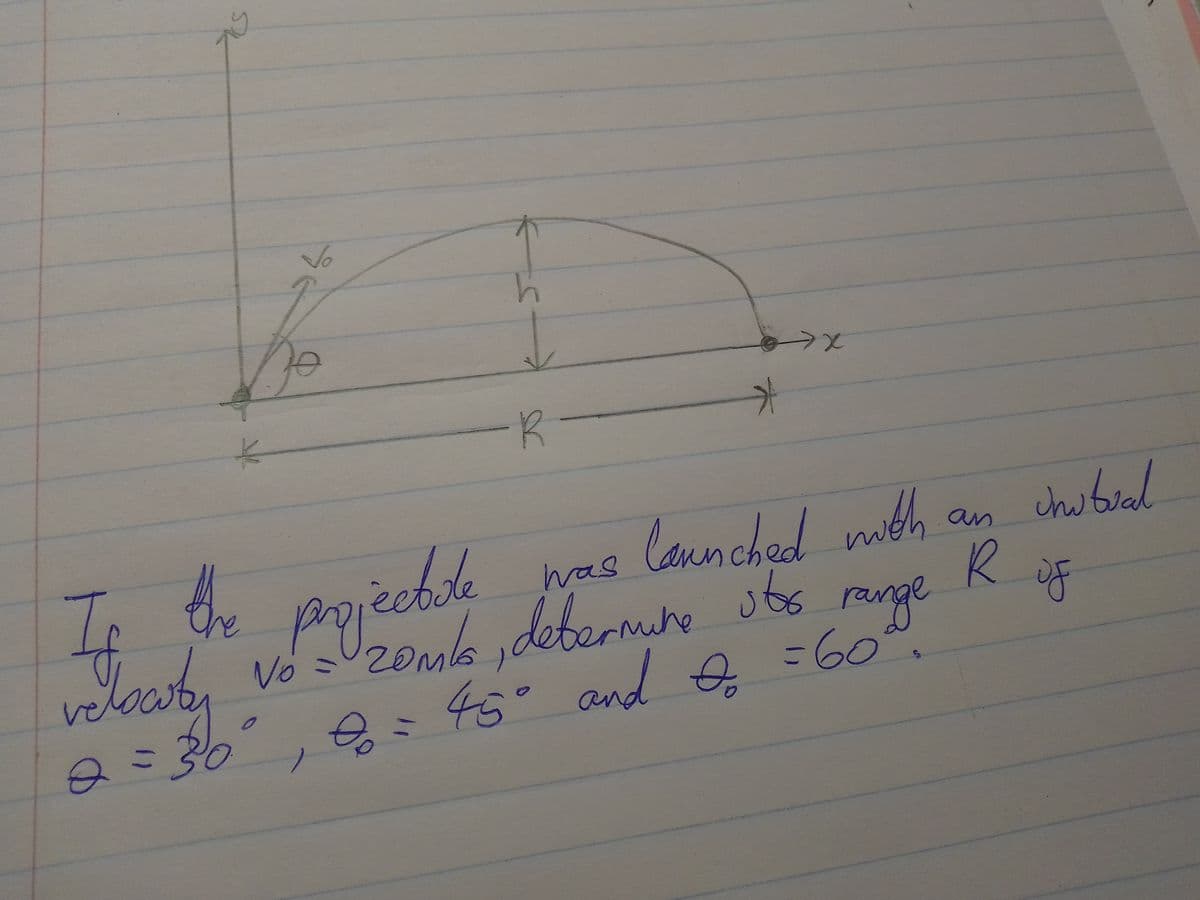 y
V₀
h
θ
x
R
If the projectile was launched with an initial
velocity V₀ = 20m/s, determine its range R if
θ = 30°, θ₀ = 45° and θ₀ = 60°.